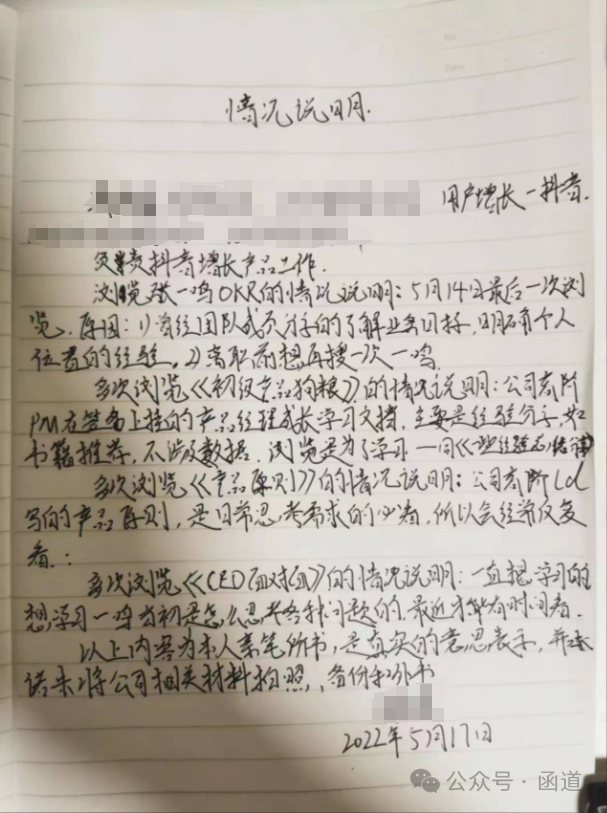 情况说明.
用户增长-抖音.
负责抖音增长产品工作.
浏览张一鸣OKR的情况说明: 5月14日最后一次浏
览. 原因: 1) 曾经团队成员分享的了解业务目标, 明确个人
位置的经验. 2) 离职前想再搜一次一鸣.
多次浏览《初级产品狗粮》的情况说明: 公司高阶
PM在签名上挂的产品经理成长学习文档, 主要是经验分享, 如
书籍推荐, 不涉及数据. 浏览是为了学习
多次浏览《产品原则》的情况说明: 公司高阶Ld
写的产品原则, 是日常思考需求的必看, 所以会经常反复
看.:
多次浏览《CEO面对面》的情况说明: 一直想学习的
想学习一鸣当初是怎么思考各种问题的. 最近才能有时间看.
以上内容为本人亲笔所书, 是真实的意思表示, 并承
诺未将公司相关材料拍照、备份和外
2022年5月17日
公众号·函道